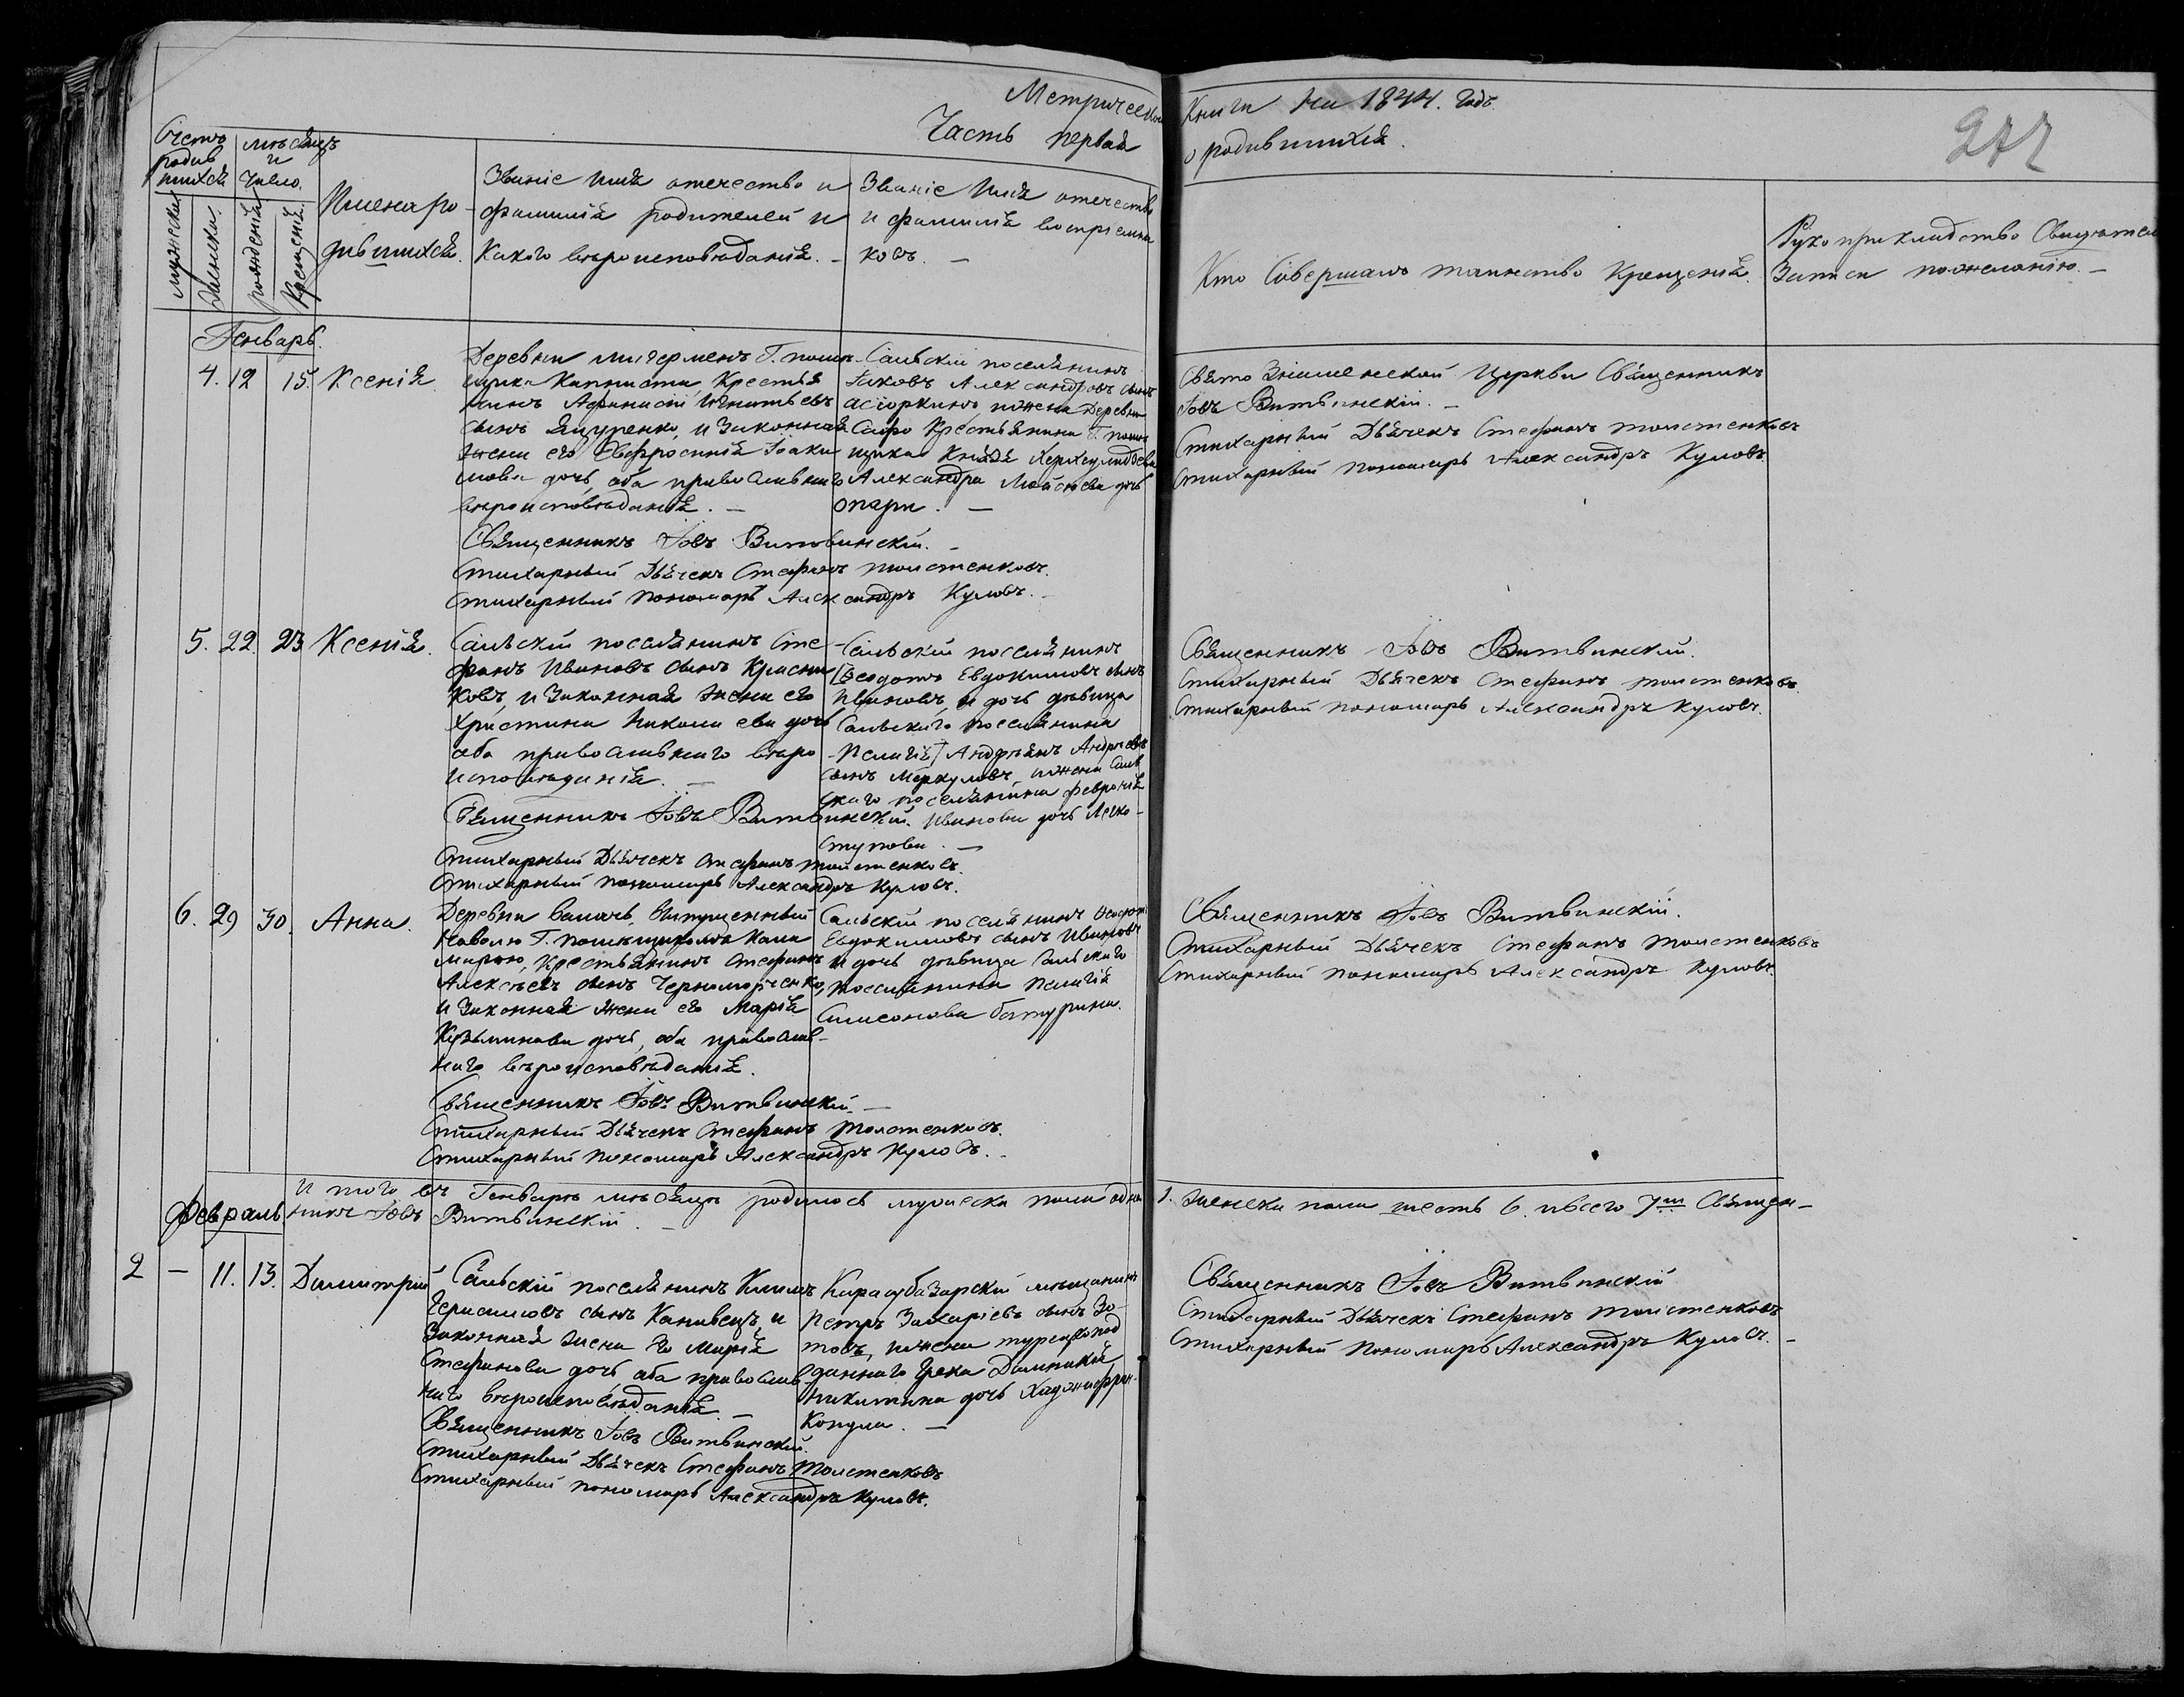 Метрической
Книги на 1844. Годъ
Часть первая
о родившихся.
277
Счетъ
родив
шихся
мужеска
женска.
мѣсяцъ
и
число.
рожденія
Крещенія.
Имена ро-
дившихся.
Званіе имя отечество и
фамилія родителей и
Какого вѣроисповѣданія. -
Званіе имя отечество
и фамилія воспріемни
ковъ. -
Кто Совершалъ таинство Крещенія.
Рукоприкладство Свидѣтел
Записи пожеланію. -
Генварь.
4. 12 15. Ксенія
Деревни Г. помѣ-
щика Капниста Крестья
нинъ Афанасій Игнатьевъ
сынъ Яцуренко, и Законная
жена его Евфросинія Іоаки
мова дочь, оба православнаго
вѣроисповѣданія. -
Священникъ Іовъ Витвинскій. -
Стихарный Дьячекъ Стефанъ Толстенковъ.
Стихарный Пономарь Александръ Куловъ. -
Сальскій поселянинъ
Іаковъ Александровъ сынъ
ижена Деревни
Крестьянина Г. помѣ
щика Князя
Александра Моисѣева дочь
опари. -
Свято Знаменской Церкви Священникъ
Іовъ Витвинскій. -
Стихарный Дьячекъ Стефанъ Толстенковъ
Стихарный Пономарь Александръ Куловъ.
5. 22. 23 Ксенія.
Сальскій поселянинъ Сте-
фанъ Ивановъ сынъ Красни
ковъ, и Законная жена его
Христина Николаева дочь
оба православнаго вѣро
исповѣданія. -
Священникъ Іовъ Витвинскій.
Стихарный Дьячекъ Стефанъ Толстенковъ.
Стихарный Пономарь Александръ Куловъ.
Сальской поселянинъ
[Ѳеодотъ Евдокимовъ сынъ
Ивановъ, и дочь дѣвица
Сальскаго поселянина
Пелагія] Андрѣянъ Андреевъ
сынъ Меркуловъ, ижена Саль
скаго поселянина Февронія
Иванова дочь Легко-
ступова. -
Священникъ Іовъ Витвинскій.
Стихарный Дьячекъ Стефанъ Толстенковъ.
Стихарный Пономарь Александръ Куловъ.
6. 29 30. Анна.
Деревни выпущенный
Наволю Г. помѣщикомъ Кала
марою, Крестьянинъ Стефанъ
Алексѣевъ сынъ Черноморченко,
и Законная жена его Марія
Кузьминова дочь, оба православ-
наго вѣроисповѣданія.
Священникъ Іовъ Витвинскій. -
Стихарный Дьячекъ Стефанъ Толстенковъ.
Стихарный Пономарь Александръ Куловъ. -
Сальскій поселянинъ Ѳеодотъ
Евдокимовъ сынъ Ивановъ
и дочь дѣвица Сальскаго
поселянина Пелагія
Симеонова батурина.
Священникъ Іовъ Витвинскій.
Стихарный Дьячекъ Стефанъ Толстенковъ
Стихарный Пономарь Александръ Куловъ.
И того въ Генварѣ мѣсяцѣ родилось мужеска пола одна 1. женска пола шесть 6. ивсего 7ⁿ Священ-
никъ Іовъ Витвинскій. -
Февраль
2 - 11. 13. Димитрий
Сальскій поселянинъ Климъ
Герасимовъ сынъ Канивецъ, и
Законная жена Его Марія
Стефанова дочь, оба православ-
наго вѣроисповѣданія. -
Священникъ Іовъ Витвинскій.
Стихарный Дьячекъ Стефанъ Толстенковъ
Стихарный Пономарь Александръ Куловъ.
Карасубазарскій мѣщанинъ
Петръ Захаріевъ сынъ Зо-
товъ, ижена турецкопод
даннаго Грека Домникія
Никитина дочь Хаджифран-
копула. -
Священникъ Іовъ Витвинскій
Стихарный Дьячекъ Стефанъ Толстенковъ
Стихарный Пономарь Александръ Куловъ. -